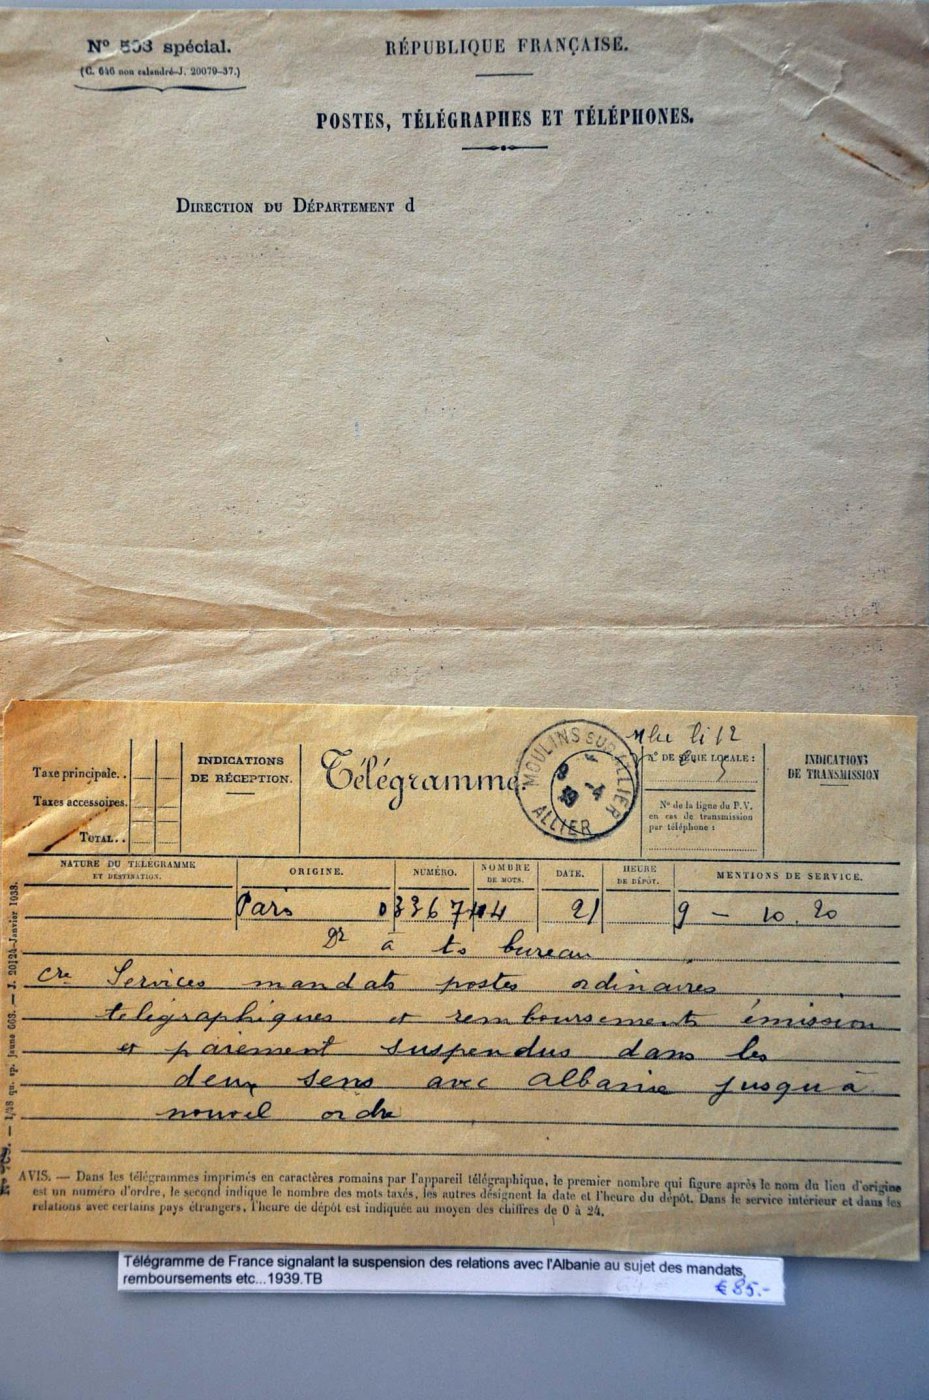 Nº 503 spécial.
(C. 646 non calandré–J. 20079–37.)
RÉPUBLIQUE FRANÇAISE.
POSTES, TÉLÉGRAPHES ET TÉLÉPHONES.
DIRECTION DU DÉPARTEMENT d
Taxe principale..
Taxes accessoires.
TOTAL..
INDICATIONS
DE RÉCEPTION.
Télégramme
MOULINS SUR ALLIER
ALLIER
Nº DE LA LIGNE LOCALE :
Nº de la ligne du P.V.
en cas de transmission
par téléphone :
INDICATIONS
DE TRANSMISSION
NATURE DU TÉLÉGRAMME
ET DESTINATION.
ORIGINE.
NUMÉRO.
NOMBRE
DE MOTS.
DATE.
HEURE
DE DÉPÔT.
MENTIONS DE SERVICE.
Paris 03367 44 21 9 – 10.20
Dr à ts bureau
cre Services mandats postes ordinaires
telegraphiques et remboursements émission
et paiement suspendus dans les
deux sens avec albanie jusqu'à
nouvel ordre
AVIS. — Dans les télégrammes imprimés en caractères romains par l'appareil télégraphique, le premier nombre qui figure après le nom du lieu d'origine
est un numéro d'ordre, le second indique le nombre des mots taxés, les autres désignent la date et l'heure du dépôt. Dans le service intérieur et dans les
relations avec certains pays étrangers, l'heure de dépôt est indiquée au moyen des chiffres de 0 à 24.
Télégramme de France signalant la suspension des relations avec l'Albanie au sujet des mandats,
remboursements etc...1939.TB
€85.-